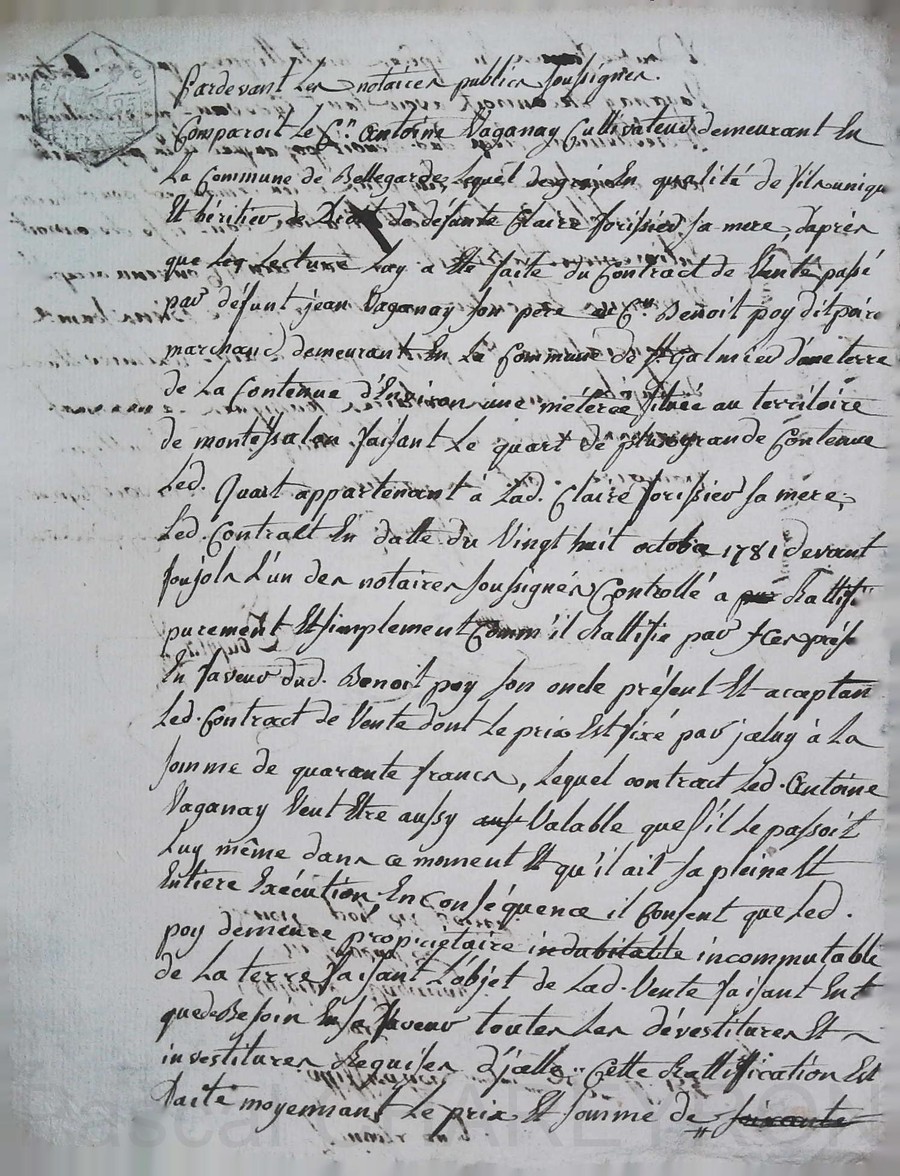 Pardevant les notaires publics soussignés.
Comparoit le Cen. Antoine Vaganay Cultivateur demeurant En
La Commune de Bellegarde, Lequel de gré En qualité de fils unique
Et héritier de Droit de défunte Claire forissier sa mere, d'après
que Lecture Luy a Ete faite du Contract de Vente passé
par défunt jean Vaganay son pere au Cen. Benoit poy dit poire
marchand demeurant En La Commune de St. Galmier d'une terre
de La Contenue d'Environ une méterée Située au territoire
de faisant Le quart de plus grande Contenue
Led. Quart appartenant à Lad. Claire forissier sa mere,
Led. Contract En datte du Vingt huit octobre 1781 devant
L'un des notaires soussignés Controllé a Rattif.
purement Et simplement Comm'il Rattifie par Ces prés
En faveur dud. Benoit poy son oncle présent Et acceptan
Led. Contract de Vente dont Le prix Est fixé par iceluy à La
somme de quarante francs, Lequel contract Led. Antoine
Vaganay Veut Etre aussy Valable que s'il Le passoit
Luy même dans ce moment Et qu'il ait sa pleine Et
Entiere Exécution. En Conséquence il Consent que Led.
poy demeure propriétaire indubitable incommutable
de La terre faisant L'objet de Lad. Vente faisant Ent
que de Besoin En sa faveur toutes Les dévestitures Et
investitures Requises d'icelle. Cette Rattification Est
faite moyennant Le prix Et somme de soixante